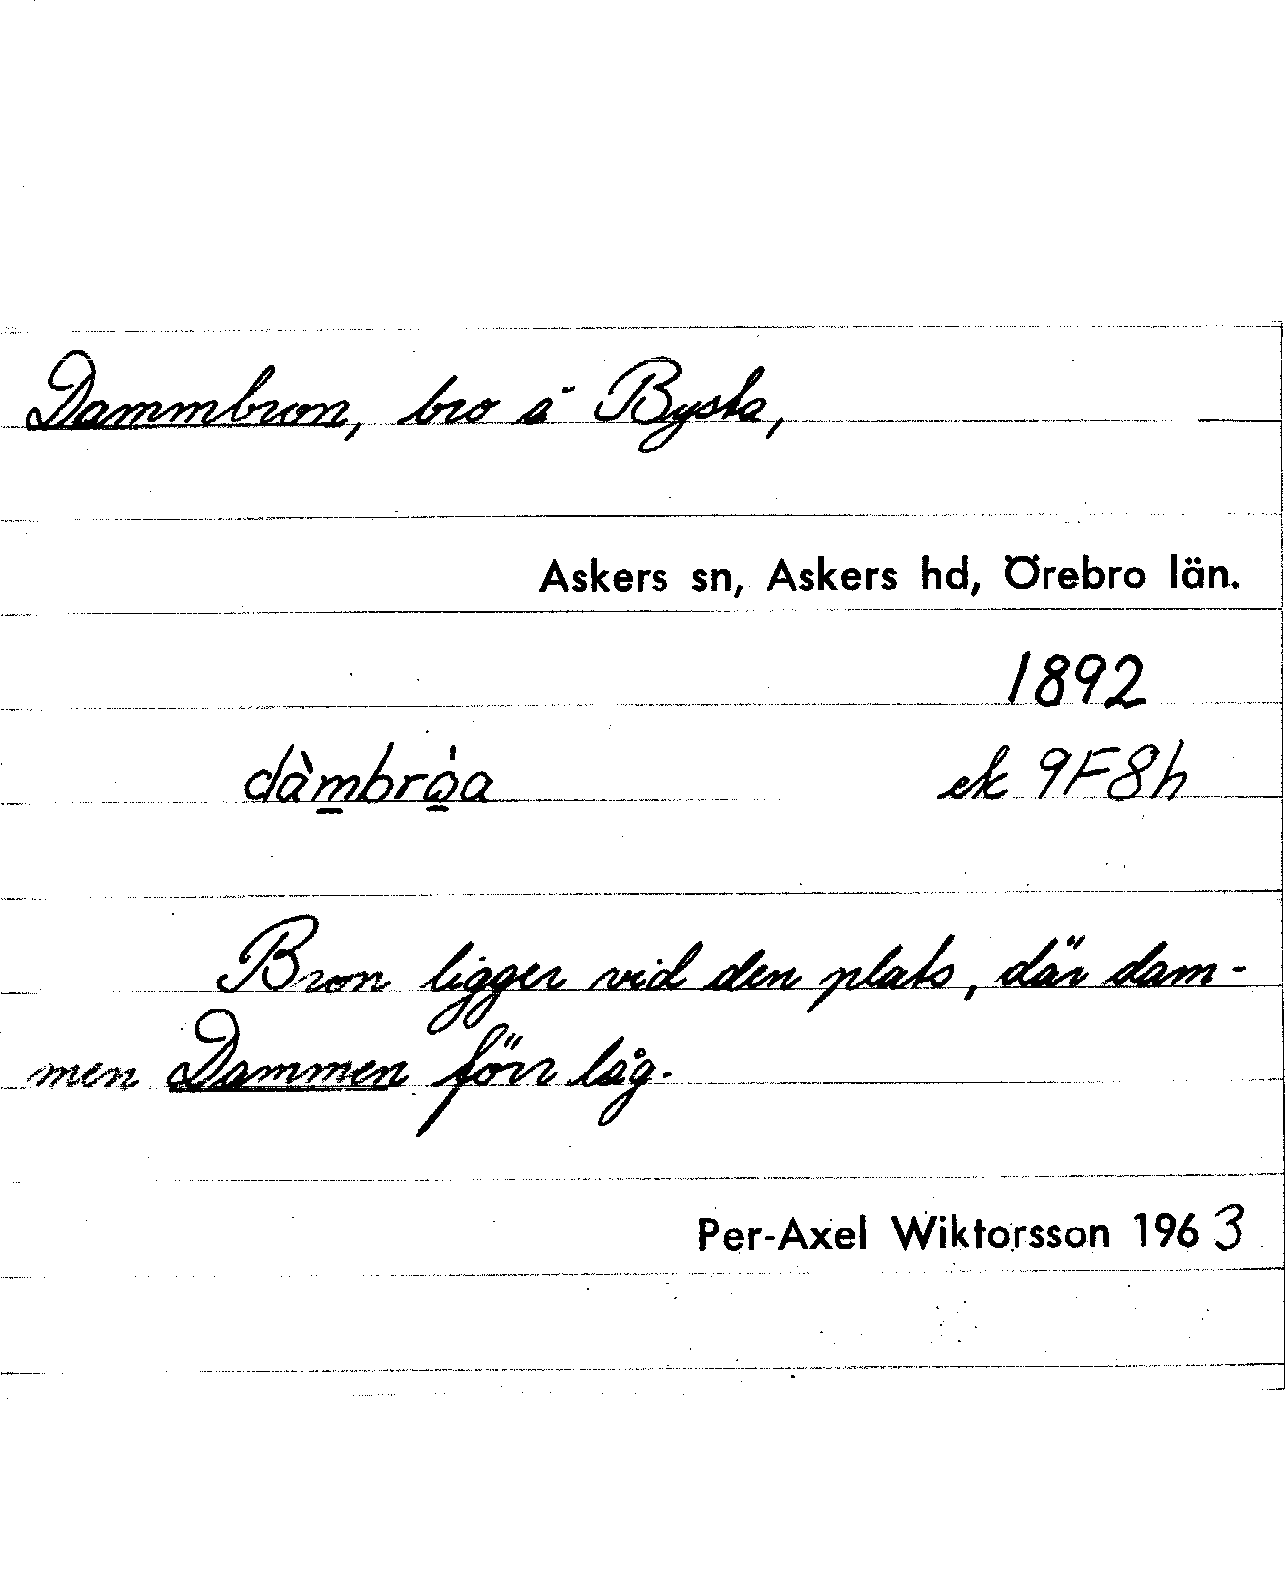 Dammbron, bro å Bysta,
Askers sn, Askers hd, Örebro län.
1892
dàm̲bró̲a
ek 9F8h
Bron ligger vid den plats, där dam-
men Dammen förr låg.
Per-Axel Wiktorsson 1963